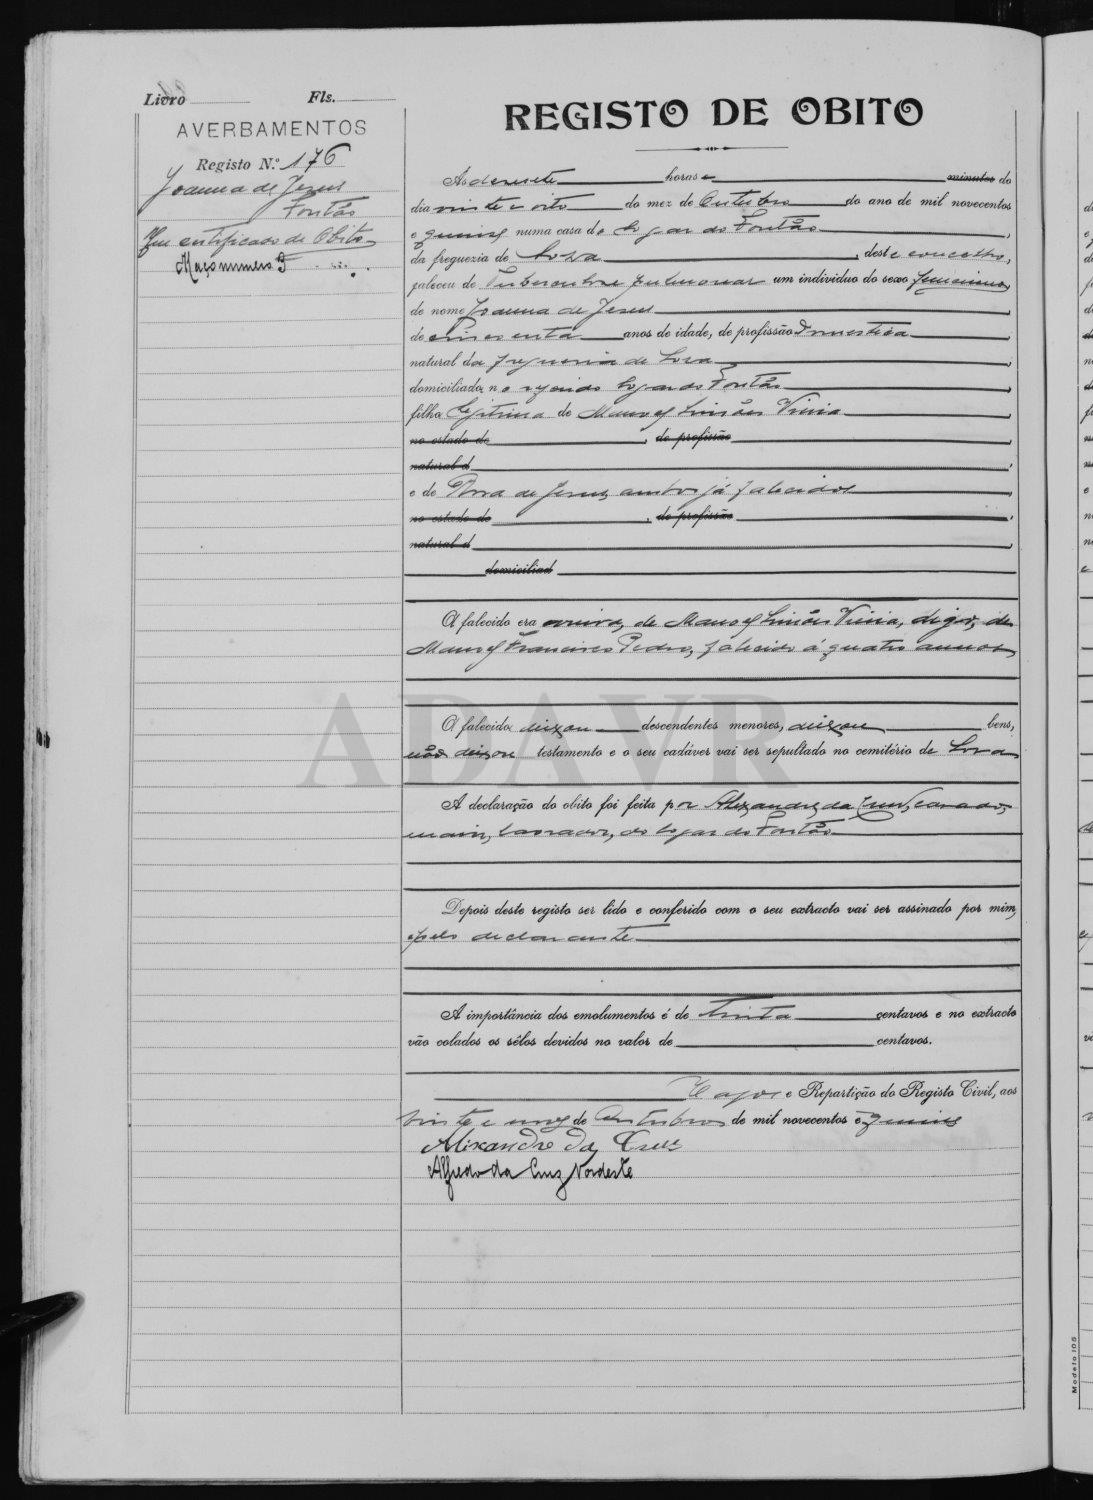 Livro Fls.
AVERBAMENTOS
Registo N.º 176
Joanna de Jesus
Fontão
Tem certificado de Obito
Maço numero 5
REGISTO DE OBITO
Ás dezesete horas e minutos do
dia vinte e oito do mez de Outubro do ano de mil novecentos
e quinze numa casa do logar do Fontão,
da freguezia de Soza, deste concelho,
faleceu de Tuberculose pulmonar um individuo do sexo femenino
de nome Joanna de Jesus
de cincoenta anos de idade, de profissão domestica
natural da freguezia de Soza
domiciliada no referido logar do Fontão
filha legitima de Manoel Simões Vieira
no estado de , de profissão
natural d
e de Rosa de Jesus, ambos já falecidos
no estado de , de profissão
natural d
domiciliad
A falecida era viuva, de Manoel Simões Vieira, digo, de
Manoel Francisco Pedro, falecido á quatro annos
A falecida deixou descendentes menores, deixou bens,
não deixou testamento e o seu cadáver vai ser sepultado no cemitério de Soza
A declaração do obito foi feita por Alexandre da Cruz, casado,
maior, lavrador, do logar do Fontão
Depois deste registo ser lido e conferido com o seu extracto vai ser assinado por mim,
e pelo declarante
A importância dos emolumentos é de trinta centavos e no extracto
vão colados os sêlos devidos no valor de centavos.
Vagos e Repartição do Registo Civil, aos
vinte e nove de Outubro de mil novecentos e quinze
Alixandre da Cruz
Alfredo da Cruz Nordeste
ADAVR
Modelo 105